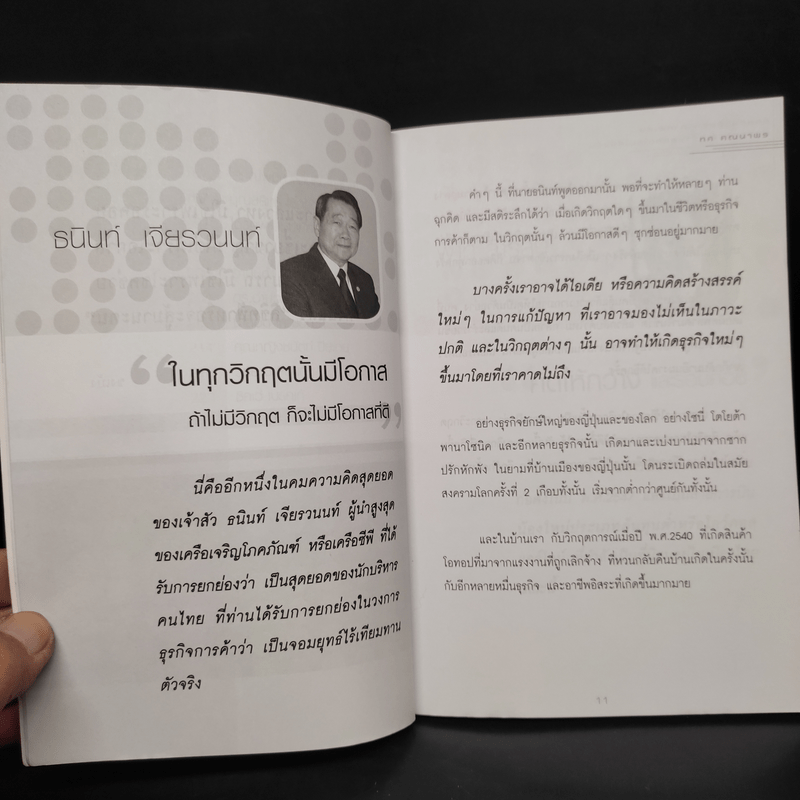 ธนินท์ เจียรวนนท์
“ในทุกวิกฤตนั้นมีโอกาส
ถ้าไม่มีวิกฤต ก็จะไม่มีโอกาสที่ดี”
นี่คืออีกหนึ่งในคมความคิดสุดยอด
ของเจ้าสัว ธนินท์ เจียรวนนท์ ผู้นำสูงสุด
ของเครือเจริญโภคภัณฑ์ หรือเครือซีพี ที่ได้
รับการยกย่องว่า เป็นสุดยอดของนักบริหาร
คนไทย ที่ท่านได้รับการยกย่องในวงการ
ธุรกิจการค้าว่า เป็นจอมยุทธ์ไร้เทียมทาน
ตัวจริง
คำๆ นี้ ที่นายธนินท์พูดออกมานั้น พอที่จะทำให้หลายๆ ท่าน
ฉุกคิด และมีสติระลึกได้ว่า เมื่อเกิดวิกฤตใดๆ ขึ้นมาในชีวิตหรือธุรกิจ
การค้าก็ตาม ในวิกฤตนั้นๆ ล้วนมีโอกาสดีๆ ซุกซ่อนอยู่มากมาย
บางครั้งเราอาจได้ไอเดีย หรือความคิดสร้างสรรค์
ใหม่ๆ ในการแก้ปัญหา ที่เราอาจมองไม่เห็นในภาวะ
ปกติ และในวิกฤตต่างๆ นั้น อาจทำให้เกิดธุรกิจใหม่ๆ
ขึ้นมาโดยที่เราคาดไม่ถึง
อย่างธุรกิจยักษ์ใหญ่ของญี่ปุ่นและของโลก อย่างโซนี่ โตโยต้า
พานาโซนิค และอีกหลายธุรกิจนั้น เกิดมาและเบ่งบานมาจากซาก
ปรักหักพัง ในยามที่บ้านเมืองของญี่ปุ่นนั้น โดนระเบิดถล่มในสมัย
สงครามโลกครั้งที่ 2 เกือบทั้งนั้น เริ่มจากต่ำกว่าศูนย์กันทั้งนั้น
และในบ้านเรา กับวิกฤตการณ์เมื่อปี พ.ศ.2540 ที่เกิดสินค้า
โอทอปที่มาจากแรงงานที่ถูกเลิกจ้าง ที่หวนกลับคืนบ้านเกิดในครั้งนั้น
กับอีกหลายหมื่นธุรกิจ และอาชีพอิสระที่เกิดขึ้นมากมาย
11